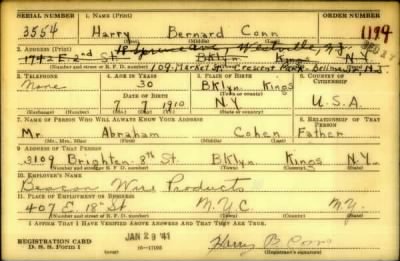 SERIAL NUMBER 1. NAME (Print) ORDER NUMBER
3554 Harry Bernard Conn 1194
(First) (Middle) (Last)
2. ADDRESS (Print) 18 Spruce Ave, Westville, N.J.
1742 E. 2nd St BKlyn Kings N.Y.
(Number and street or R. F. D. number) 109 Market St Crescent Park - Bellmawr, N.J.
3. TELEPHONE 4. AGE IN YEARS 5. PLACE OF BIRTH 6. COUNTRY OF CITIZENSHIP
None 30 BKlyn Kings
DATE OF BIRTH
7 7 1910 N.Y. U.S.A.
(Exchange) (Number) (Mo.) (Day) (Yr.) (State or country)
7. NAME OF PERSON WHO WILL ALWAYS KNOW YOUR ADDRESS 8. RELATIONSHIP OF THAT PERSON
Mr. Abraham Cohen Father
(Mr., Mrs., Miss) (First) (Middle) (Last)
9. ADDRESS OF THAT PERSON
3109 Brighton 8th St. BKlyn Kings N.Y.
(Number and street or R. F. D. number) (Town) (County) (State)
10. EMPLOYER'S NAME
Beacon Wire Products
11. PLACE OF EMPLOYMENT OR BUSINESS
407 E. 18th St N.Y.C. NY
(Number and street or R. F. D. number) (Town) (County) (State)
I AFFIRM THAT I HAVE VERIFIED ABOVE ANSWERS AND THAT THEY ARE TRUE.
REGISTRATION CARD JAN 29 '41 Harry B Conn
D. S. S. Form 1 16—17105 (Registrant's signature)